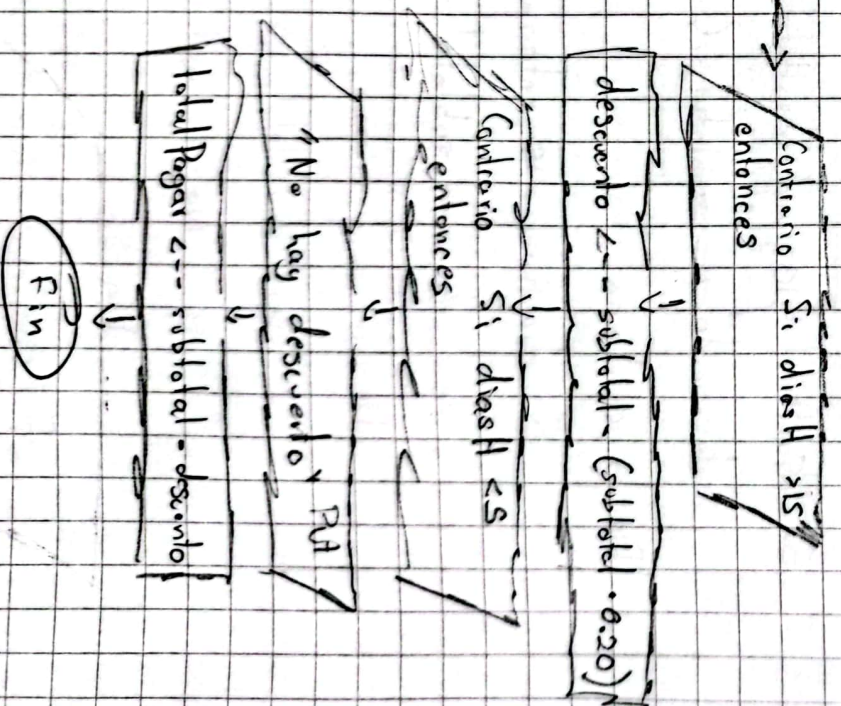 Contrario Si diasH >15
entonces
descuento <-- subtotal - (subtotal * 0.20)
Contrario Si diasH <5
entonces
"No hay descuento"
totalPagar <-- subtotal - descuento
Fin